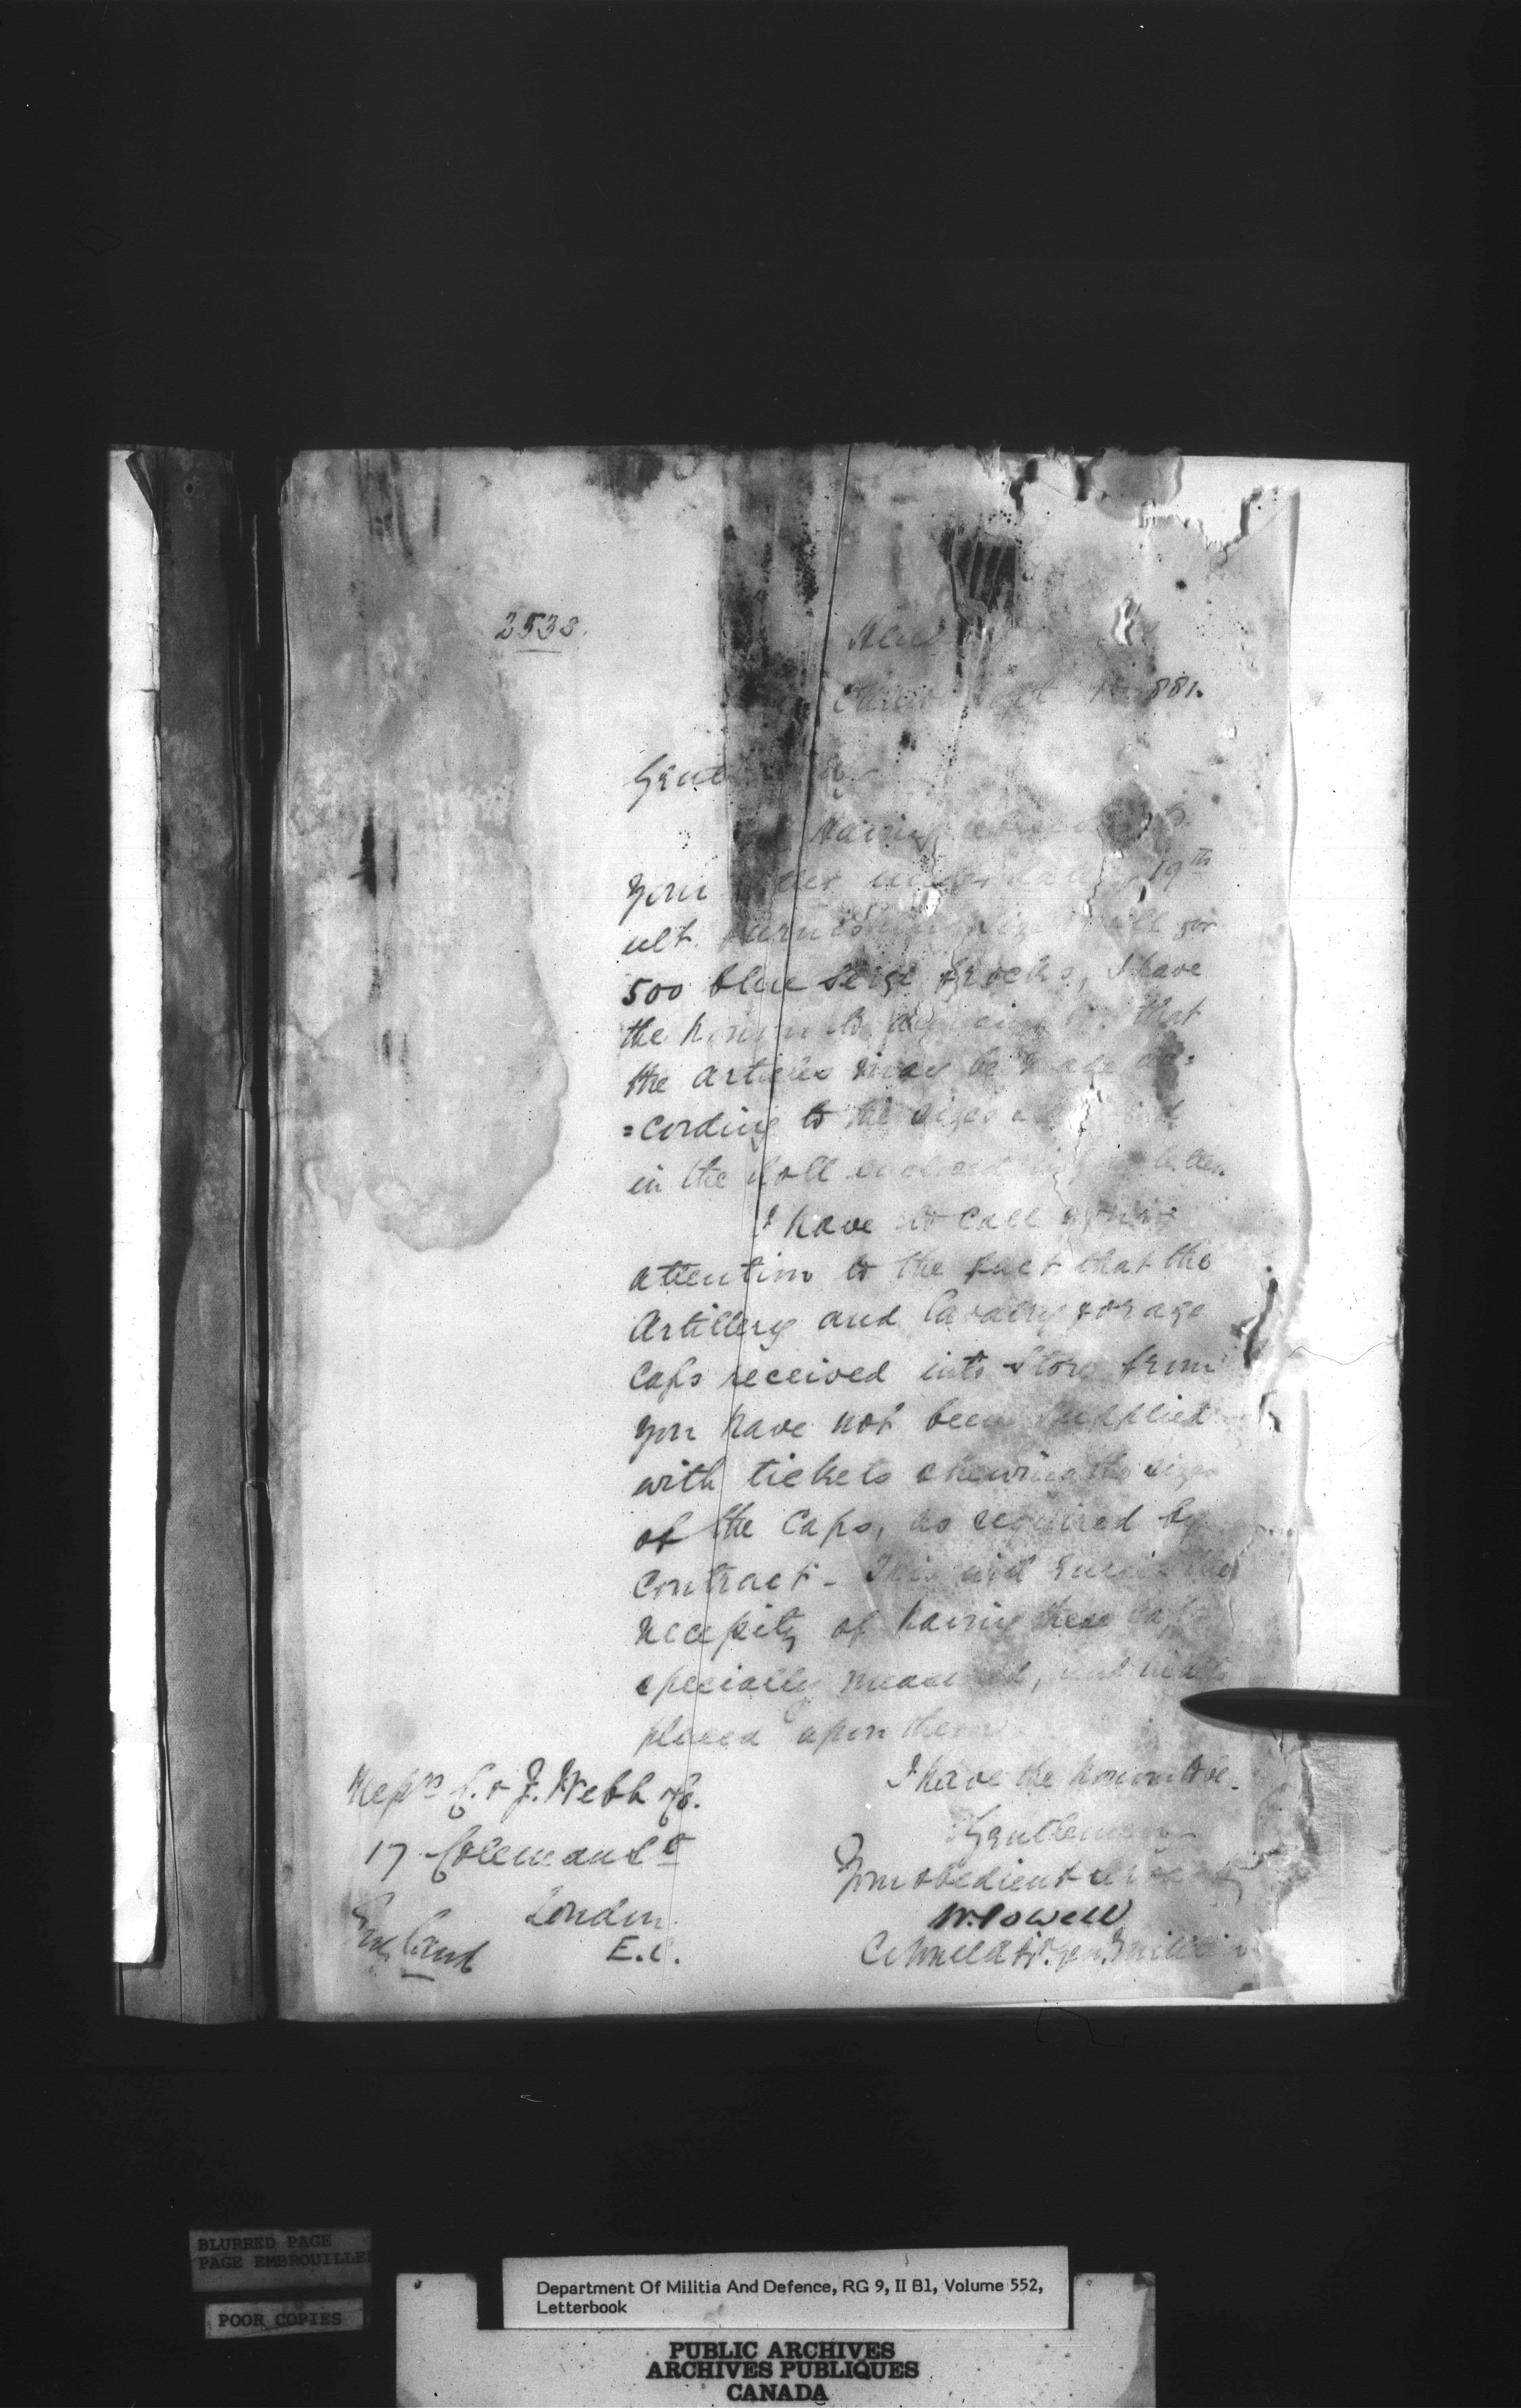 2533.
881.
Gent
Having
your under 19th
ult. furnishing size roll for
500 blue Serge frocks, I have
the honor to acquaint that
the articles may be made ac=
=cording to the sizes
in the Roll enclosed letter.
I have to call your
attention to the fact that the
Artillery and Cavalry forage
Caps received into Store from
you have not been supplied
with tickets shewing the sizes
of the Caps, as required by
Contract - This will the
necessity of having these caps
specially measured, and
placed upon them
I have the honor to be.
Gentlemen
Your obedient
W. Powell
Colonel Adjt. Gen. Militia
Messrs C. & J. Webb & Co.
17 Coleman St
London
England E.C.
BLURRED PAGE
PAGE EMBROUILLE
POOR COPIES
Department Of Militia And Defence, RG 9, II B1, Volume 552,
Letterbook
PUBLIC ARCHIVES
ARCHIVES PUBLIQUES
CANADA